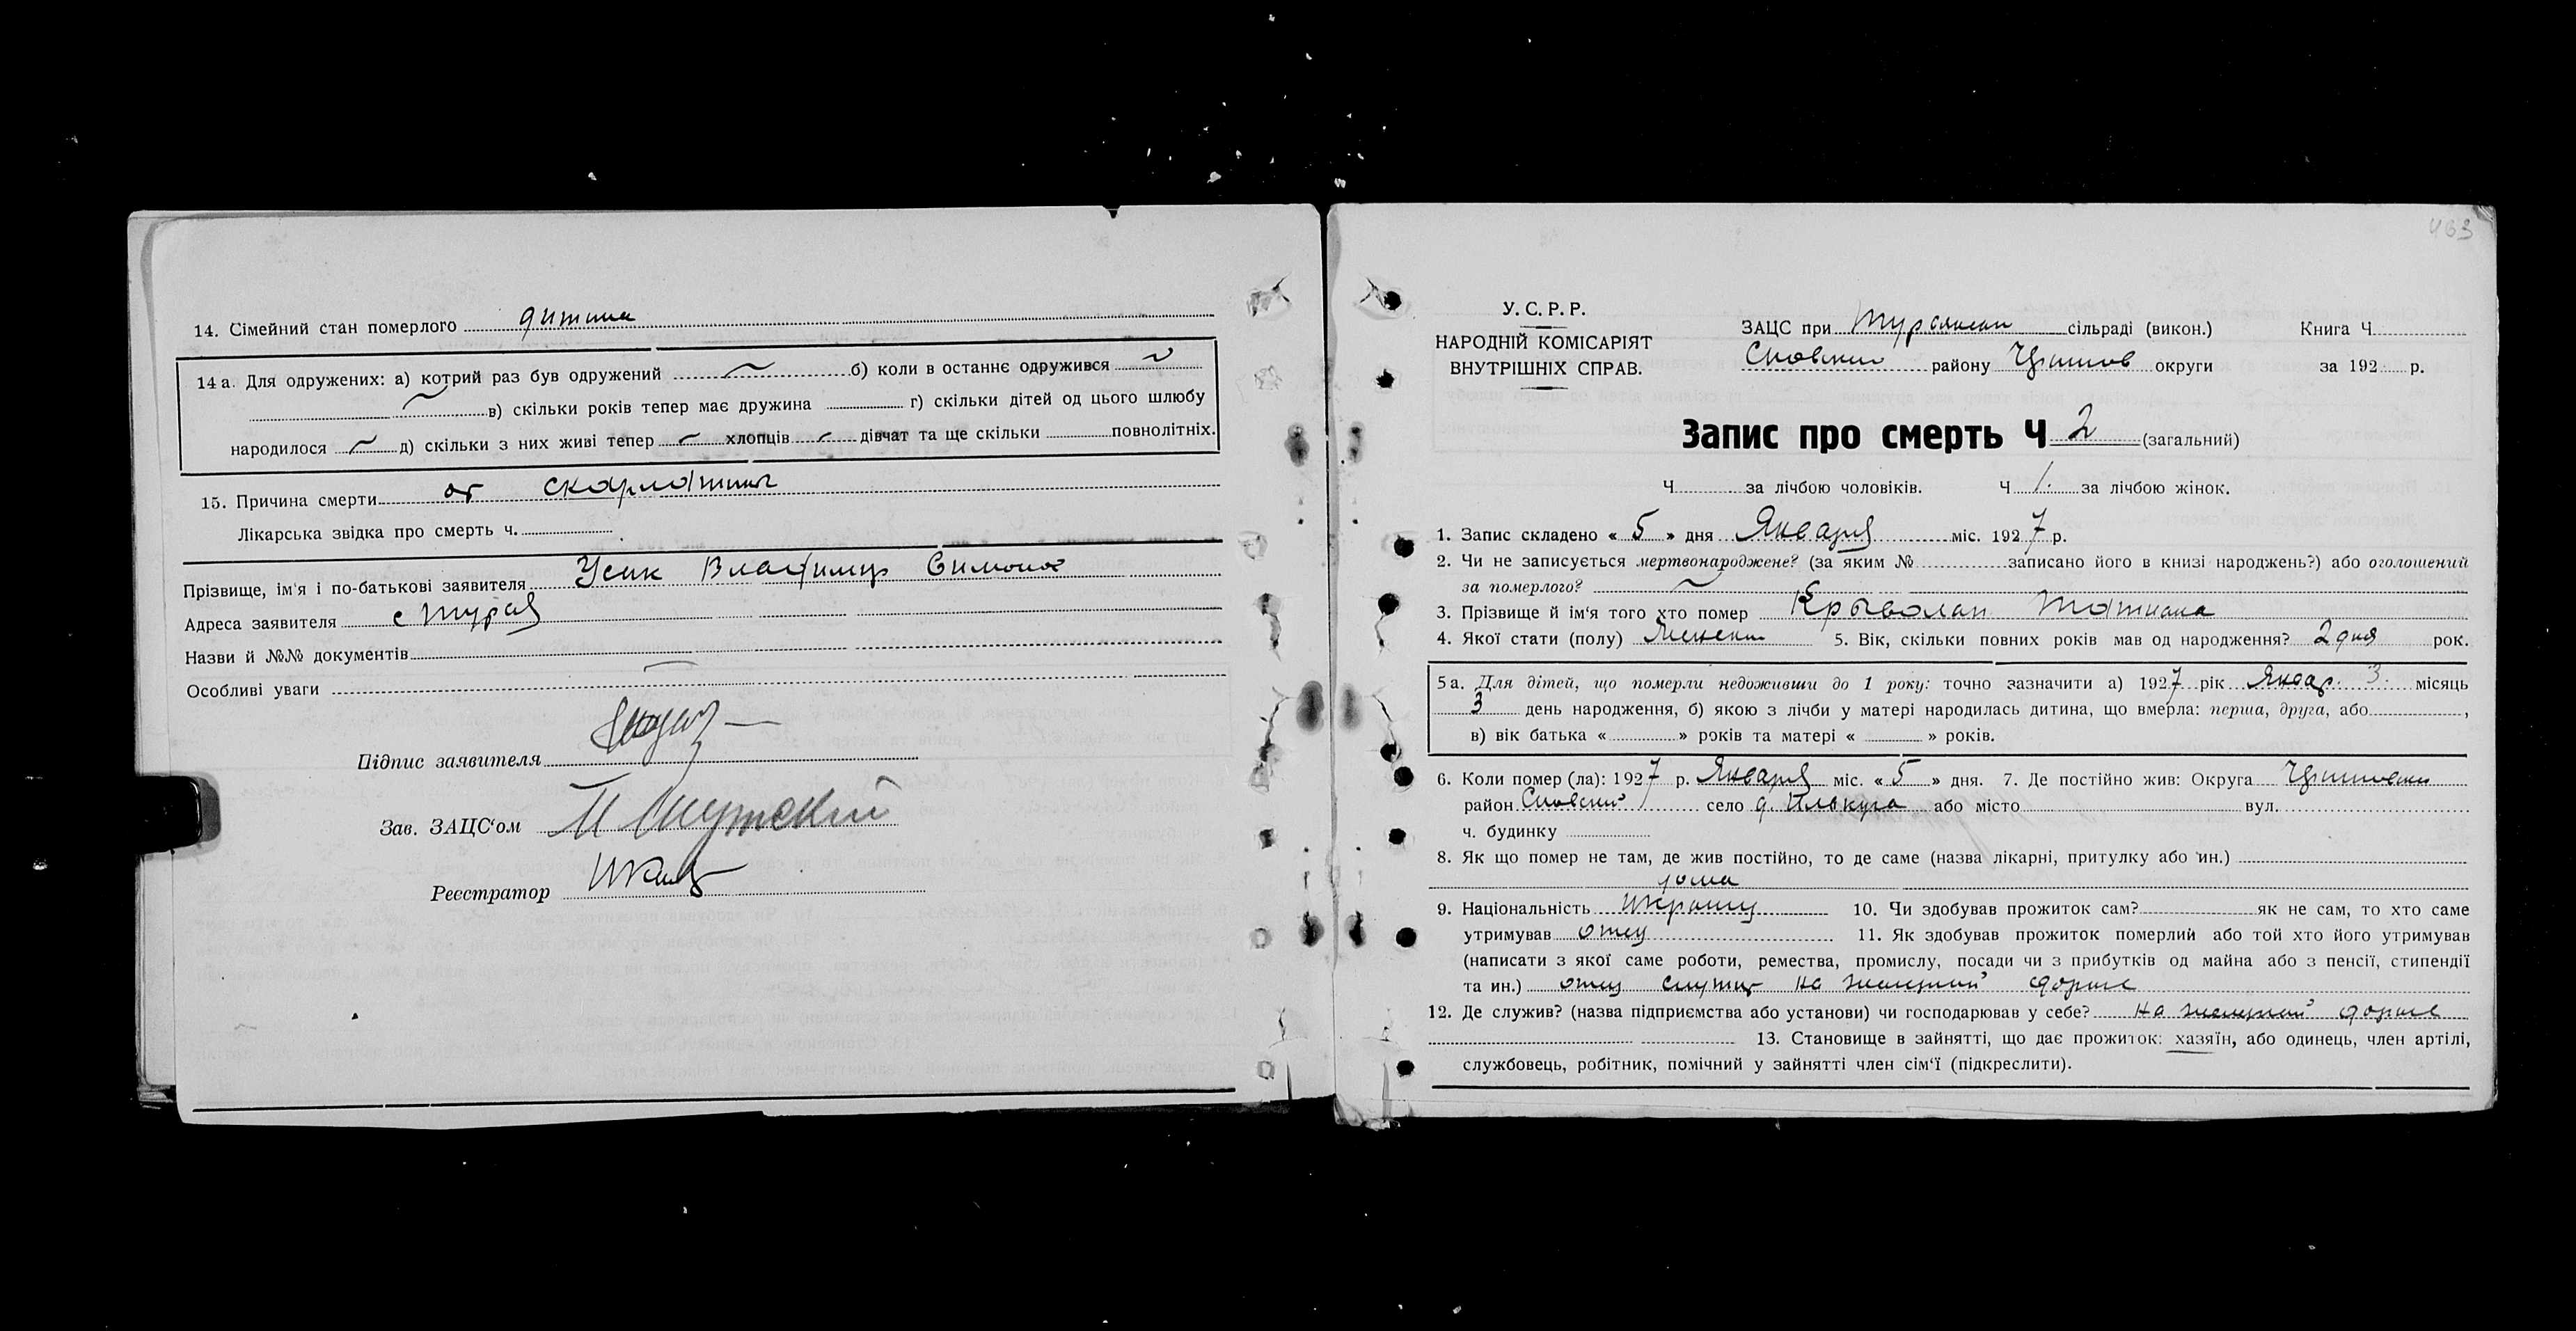 14. Сімейний стан померлого дитина
14а. Для одружених: а) котрий раз був одружений б) коли в останнє одружився
в) скільки років тепер має дружина г) скільки дітей од цього шлюбу
народилося д) скільки з них живі тепер хлопців дівчат та ще скільки повнолітніх.
15. Причина смерти от скарлатины
Лікарська звідка про смерть ч.
Прізвище, ім'я і по-батькові заявителя Усик Владимир Симонов
Адреса заявителя с Турья
Назви й №№ документів
Особливі уваги
Підпис заявителя
Зав. ЗАЦС'ом
Реєстратор
463
У. С. Р. Р.
НАРОДНІЙ КОМІСАРІЯТ
ВНУТРІШНІХ СПРАВ.
ЗАЦС при сільраді (викон.) Книга Ч.
Сновский району округи за 192 р.
Запис про смерть Ч 2 (загальний)
Ч за лічбою чоловіків. Ч 1. за лічбою жінок.
1. Запис складено « 5 » дня Января міс. 1927 р.
2. Чи не записується мертвонароджене? (за яким № записано його в книзі народжень?) або оголошений
за померлого?
3. Прізвище й ім'я того хто помер Крыволап Татиана
4. Якої стати (полу) Женский 5. Вік, скільки повних років мав од народження? 2 дня рок.
5а. Для дітей, що померли недоживши до 1 року: точно зазначити а) 1927 рік Январ. 3. місяць
3 день народження, б) якою з лічби у матері народилась дитина, що вмерла: перша, друга, або ,
в) вік батька « » років та матері « » років.
6. Коли помер (ла): 1927 р. Января міс. « 5 » дня. 7. Де постійно жив: Округа
район Сновский село д. або місто вул.
ч. будинку
8. Як що помер не там, де жив постійно, то де саме (назва лікарні, притулку або ин.)
дома
9. Національність 10. Чи здобував прожиток сам? як не сам, то хто саме
утримував отец 11. Як здобував прожиток померлий або той хто його утримував
(написати з якої саме роботи, ремества, промислу, посади чи з прибутків од майна або з пенсії, стипендії
та ин.) отец служит на железной дороге
12. Де служив? (назва підприємства або установи) чи господарював у себе? на железной дороге
13. Становище в зайнятті, що дає прожиток: хазяїн, або одинець, член артілі,
службовець, робітник, помічний у зайнятті член сім'ї (підкреслити).